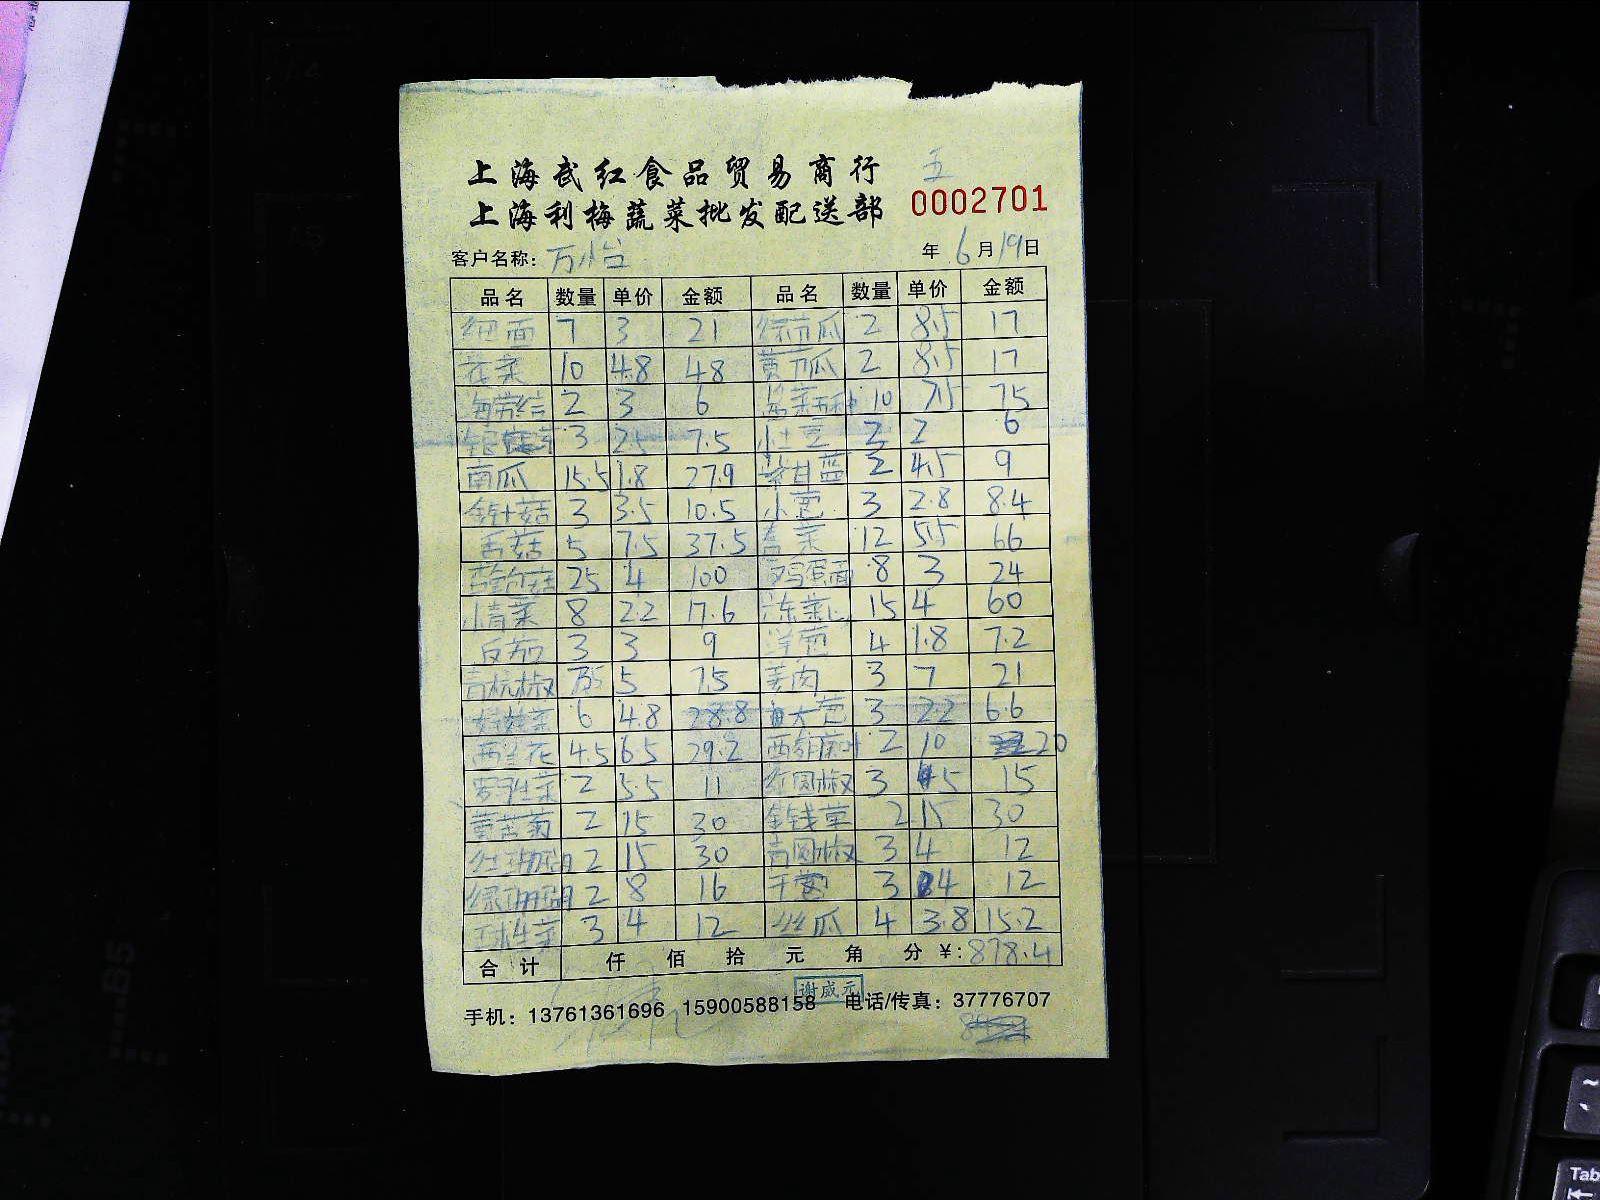 五
上海武红食品贸易商行
上海利梅蔬菜批发配送部 0002701
客户名称: 万怡 年 6月19日
品名 数量 单价 金额 品名 数量 单价 金额
细面 7 3 21 绿节瓜 2 8.5 17
花菜 10 4.8 48 黄节瓜 2 8.5 17
海带结 2 3 6 10 7.5 75
3 2.5 7.5 小土豆 2 6
南瓜 15.5 1.8 27.9 紫甘蓝 2 4.5 9
金针菇 3 3.5 10.5 小葱 3 2.8 8.4
香菇 5 7.5 37.5 12 5.5 66
杏鲍菇 25 4 100 鸡蛋面 8 3 24
小青菜 8 2.2 17.6 15 4 60
3 3 9 洋葱 4 1.8 7.2
青杭椒 5 75 姜肉 3 7 21
娃娃菜 6 4.8 28.8 大葱 3 2.2 6.6
西兰花 4.5 6.5 29.2 2 10 20
罗生菜 2 5.5 11 红圆椒 3 5 15
黄苦菊 2 15 30 金钱草 2 15 30
红珊瑚 2 15 30 青圆椒 3 4 12
绿珊瑚 2 8 16 干葱 3 4 12
生菜 3 4 12 丝瓜 4 3.8 15.2
合计 仟 佰 拾 元 角 分 ¥: 878.4
谢威元
手机: 13761361696 15900588158 电话/传真: 37776707